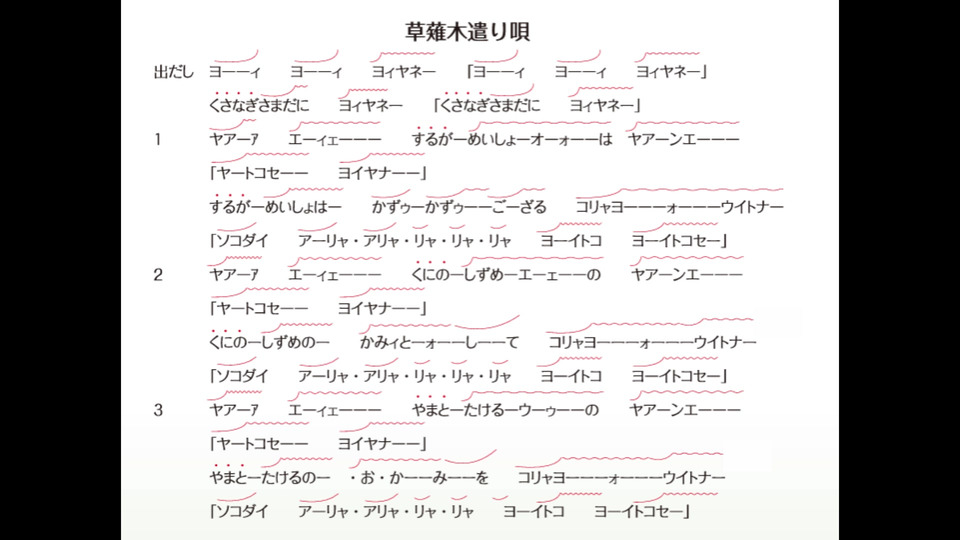 草薙木遣り唄
出だし ヨーーィ ヨーーィ ヨィヤネー 「ヨーーィ ヨーーィ ヨィヤネー」
くさなぎさまだに ヨィヤネー 「くさなぎさまだに ヨィヤネー」
1 ヤアーァ エーィェーーー するがーめいしょーオーォーーは ヤアーンエーーー
「ヤートコセーー ヨイヤナーー」
するがーめいしょはー かずゥーかずゥーーごーざる コリャヨーーーォーーーウイトナー
「ソコダイ アーリャ・アリャ・リャ・リャ・リャ ヨーイトコ ヨーイトコセー」
2 ヤアーァ エーィェーーー くにのーしずめーエーェーーの ヤアーンエーーー
「ヤートコセーー ヨイヤナーー」
くにのーしずめのー かみィとーォーーしーーて コリャヨーーーォーーーウイトナー
「ソコダイ アーリャ・アリャ・リャ・リャ・リャ ヨーイトコ ヨーイトコセー」
3 ヤアーァ エーィェーーー やまとーたけるーウーゥーーの ヤアーンエーーー
「ヤートコセーー ヨイヤナーー」
やまとーたけるのー ・お・かーーみーーを コリャヨーーーォーーーウイトナー
「ソコダイ アーリャ・アリャ・リャ・リャ ヨーイトコ ヨーイトコセー」